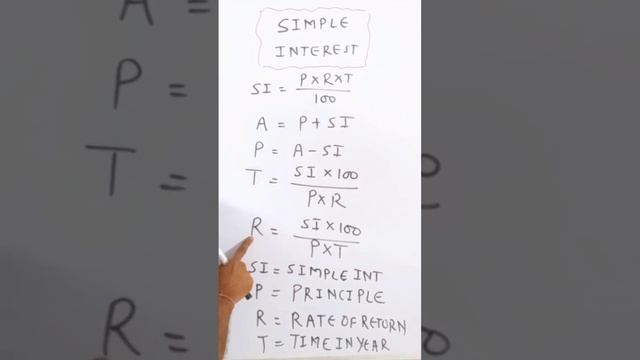 SIMPLE
INTEREST
SI = P×R×T / 100
A = P+SI
P = A-SI
T = SI×100 / P×R
R = SI×100 / P×T
SI = SIMPLE INT
P = PRINCIPLE
R = RATE OF RETORN
T = TIME IN YEAR
A =
P =
T =
R =